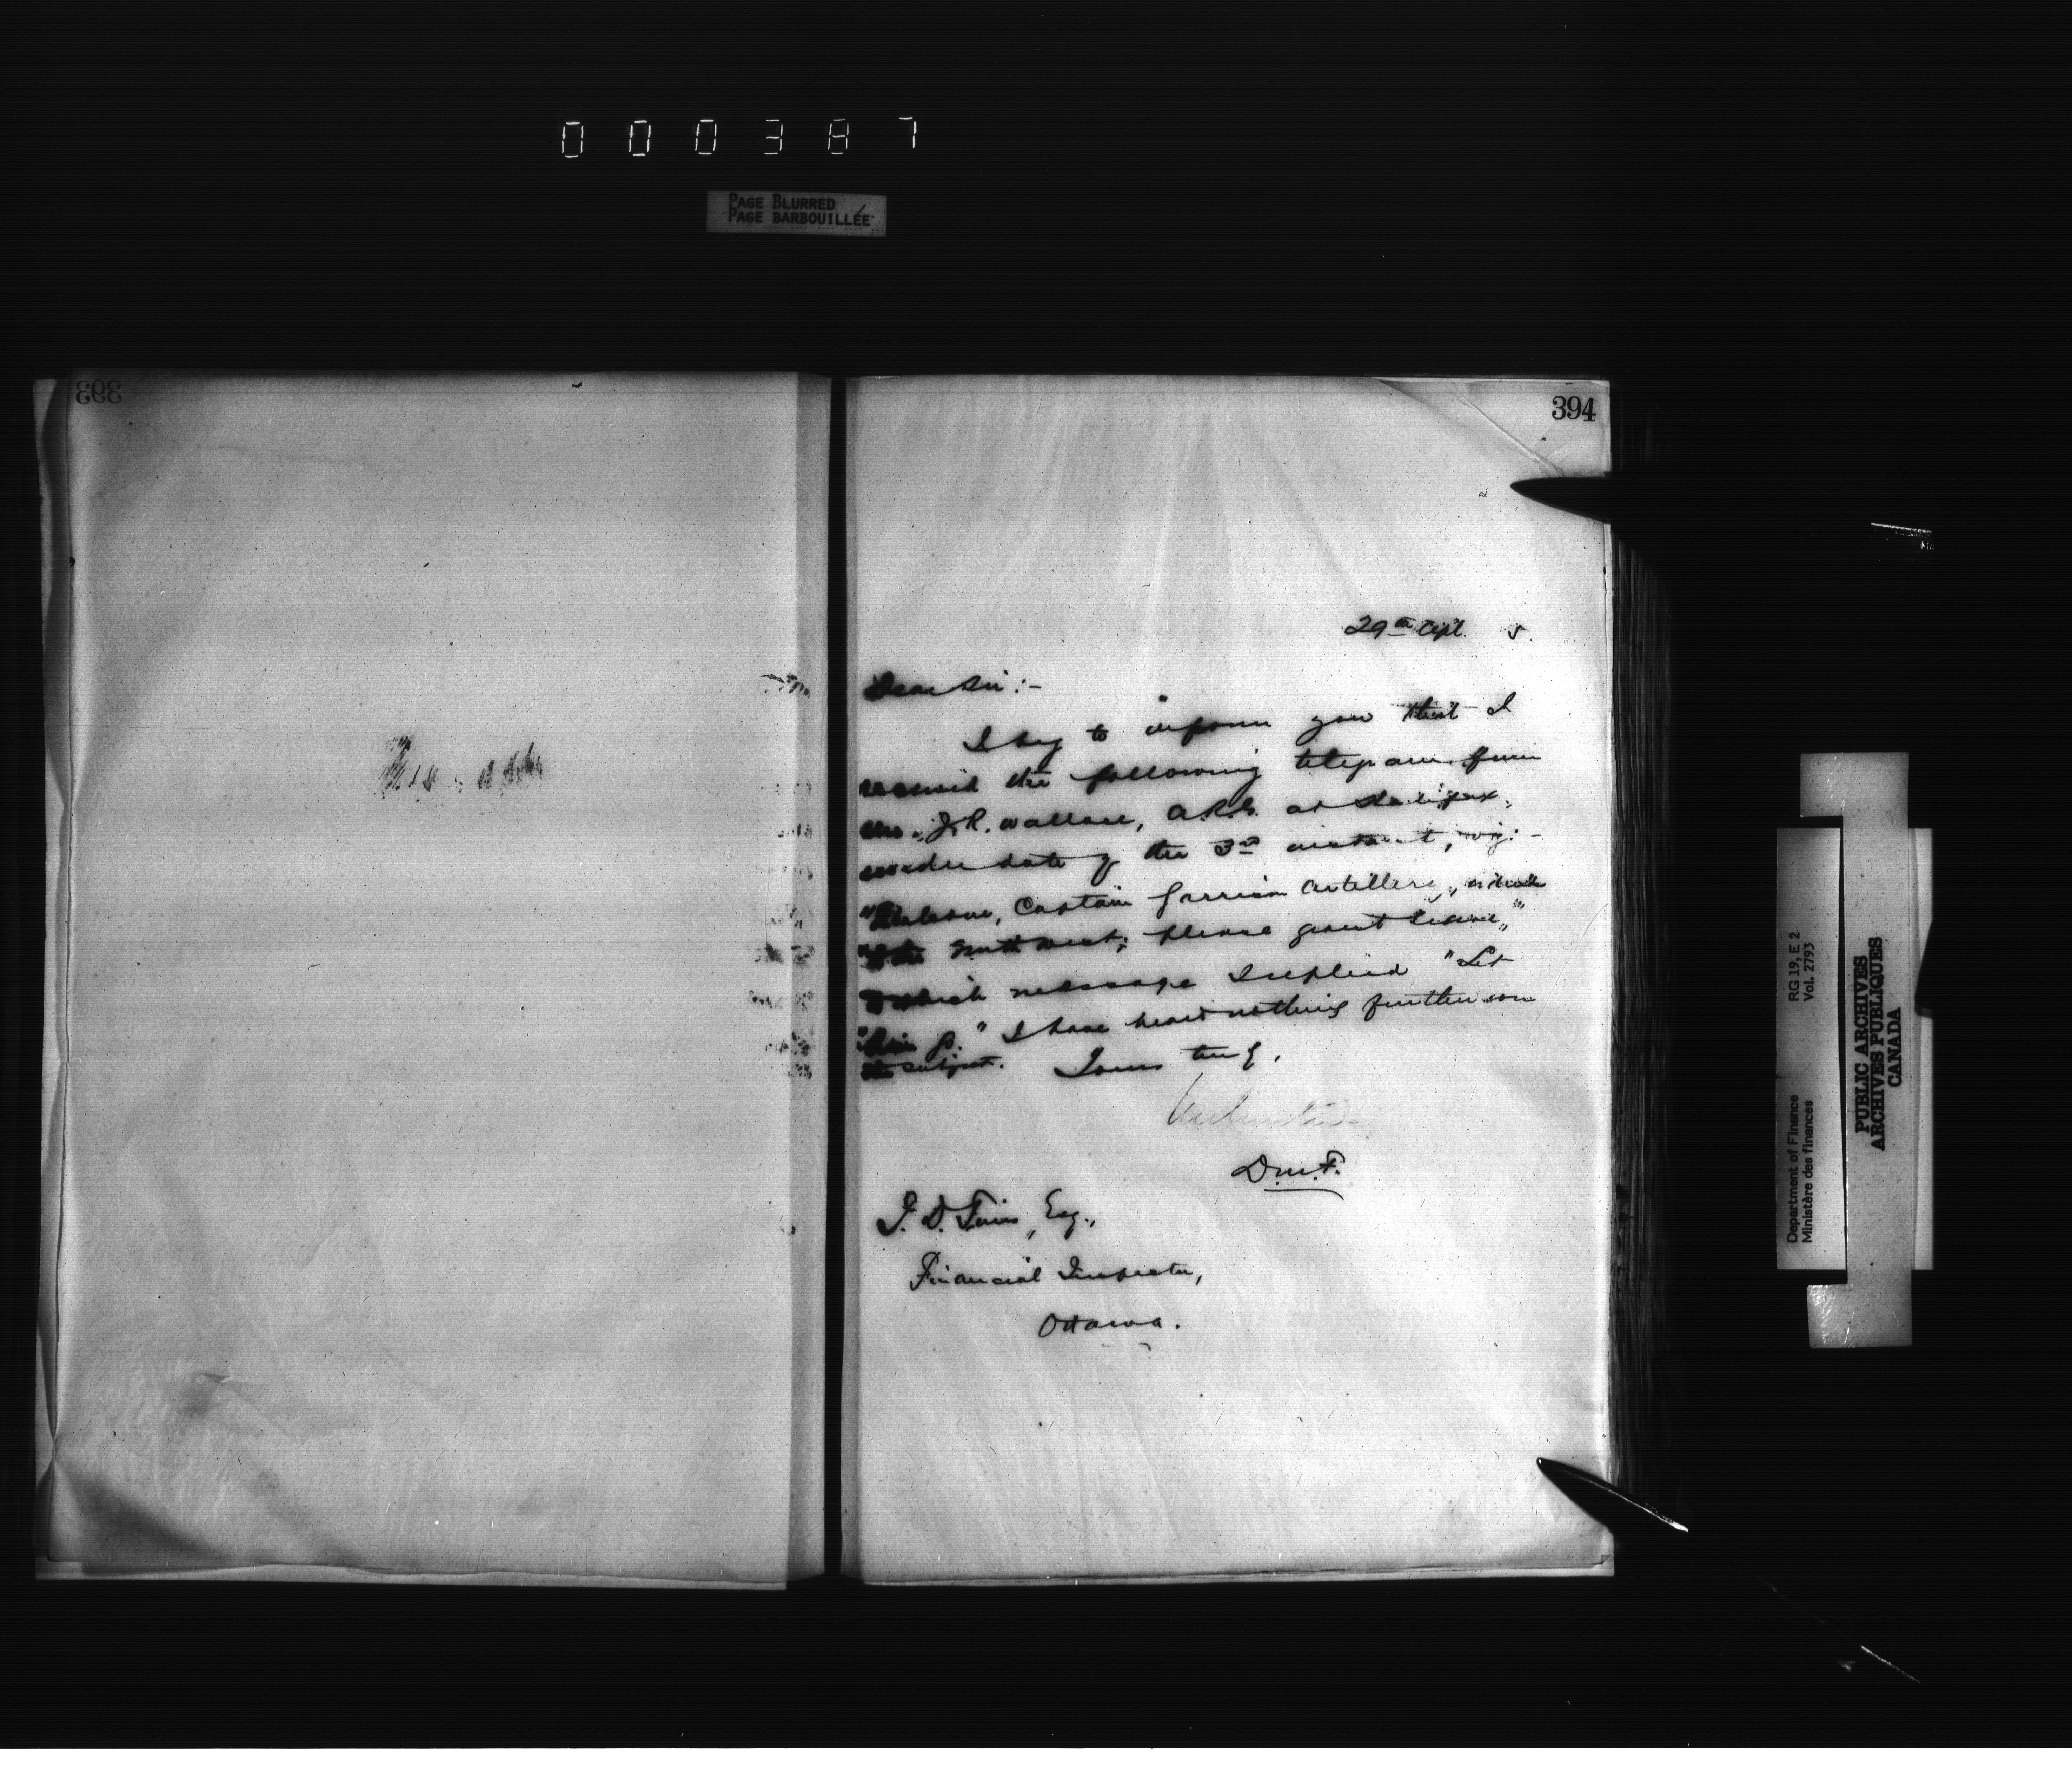 000387
PAGE BLURRED
PAGE BARBOUILLÉE
393
394
29th Apl. 5.
Dear Sir :-
I beg to inform you that I
received the following telegram from
Mr. J. R. Wallace, A.R.G. at Halifax,
under date of the 3rd instant, viz: -
Captain Garrison Artillery, ordered
"to the North West; please grant leave,"
to which message I replied "Let
"him go." I have heard nothing further on
the subject. Yours truly,
D.M.F.
Esq.,
Financial Inspector,
Ottawa.
Department of Finance RG 19, E 2
Ministère des finances Vol. 2793
PUBLIC ARCHIVES
ARCHIVES PUBLIQUES
CANADA